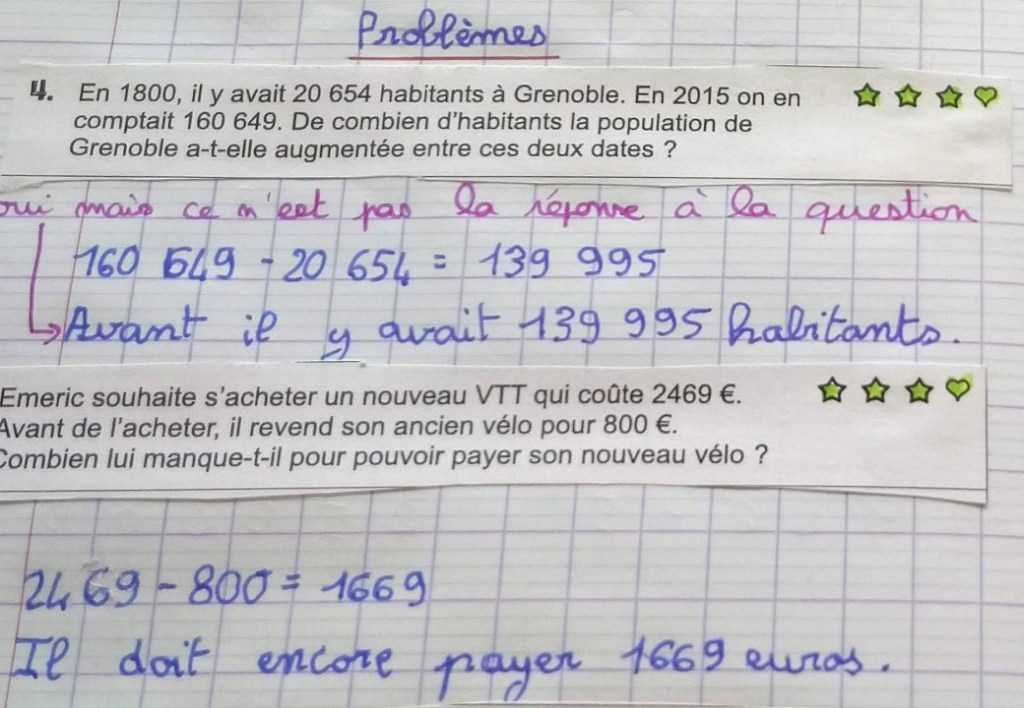 Problèmes
4. En 1800, il y avait 20 654 habitants à Grenoble. En 2015 on en
comptait 160 649. De combien d'habitants la population de
Grenoble a-t-elle augmentée entre ces deux dates ?
oui mais ce n'est pas la réponse à la question
160 649 - 20 654 = 139 995
Avant il y avait 139 995 habitants.
Emeric souhaite s'acheter un nouveau VTT qui coûte 2469 €.
Avant de l'acheter, il revend son ancien vélo pour 800 €.
Combien lui manque-t-il pour pouvoir payer son nouveau vélo ?
2469 - 800 = 1669
Il doit encore payer 1669 euros.